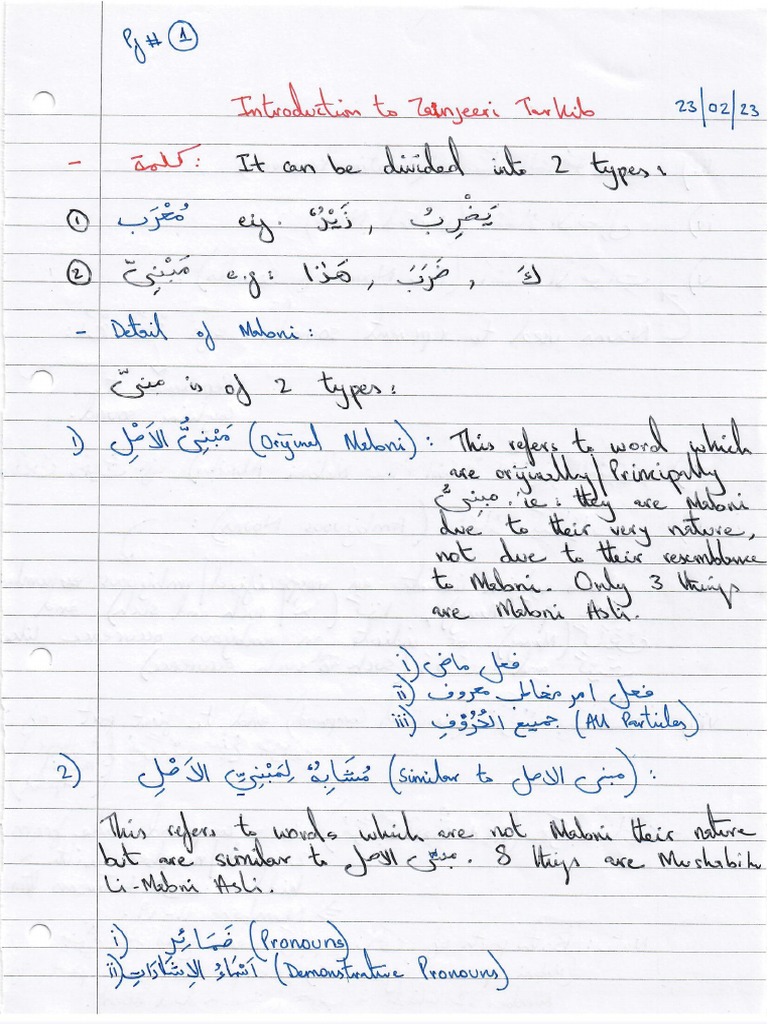 Pg # 1
Introduction to Zainjeeri Tarkib 23/02/23
- كلمة: It can be divided into 2 types:
① مُعْرَب e.g. زَيْدٌ, يَضْرِبُ
② مَبْنِيّ e.g: هَذٰا, ضَرَبَ, كَ
- Detail of Mabni:
مبنيّ is of 2 types:
1) مَبْنِيُّ الاَصْلِ (Original Mabni): This refers to word which
are originally/Principally
مبنِيٌّ, ie: they are Mabni
due to their very nature,
not due to their resemblance
to Mabni. Only 3 things
are Mabni Asli.
i) فعل ماضى
ii) فعل امر مخاطب معروف
iii) جميع الحُرُوْفِ (All Particles)
2) مُشَابِهٌ لِمَبْنِيِّ الاَصْلِ (Similar to مبنى الاصل):
This refers to words which are not Mabni their nature
but are similar to مبنى الاصل. 8 things are Mushabih
Li-Mabni Asli.
i) ضَمَائِرِ (Pronouns)
ii) اَسْمَاءُ الاِشَارَاتِ (Demonstrative Pronouns)